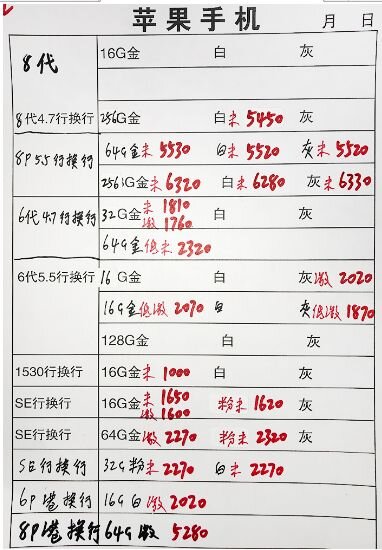 苹果手机 月 日
8代 16G金 白 灰
8代4.7行换行 256G金 白未5450 灰
8P5.5行换行 64G金未5530 白未5520 灰未5520
256G金未6320 白未6280 灰未6330
6代4.7行换行 32G金未1810
激1760
64G金低未2320
6代5.5行换行 16G金 白 灰激2020
16G金低激2070 白 灰低激1870
128G金 白 灰
1530行换行 16G金未1000 白 灰
SE行换行 16G金未1650 粉未1620 灰
激1600
SE行换行 64G金激2270 粉未2320 灰
SE行换行 32G粉未2270 白未2270
6P港换行 16G白激2020
8P港换行64G激 5280